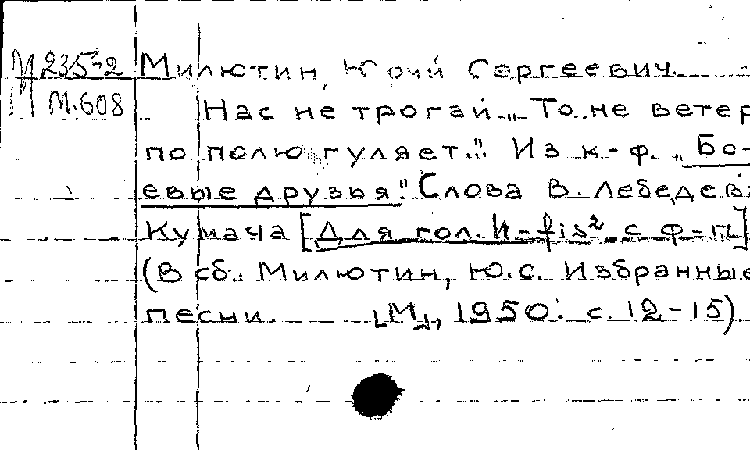 М 235-2 Милютин, Юрий Сергеевич.
М.608 Нас не трогай... "То не ветер
по полю гуляет..." Из к-ф. "Бо-
евые друзья". Слова В. Лебедева
Кумача [Для гол. h-fis² с ф-п]
(В сб. Милютин, Ю.С. Избранные
песни. [М], 1950. с. 12-15)